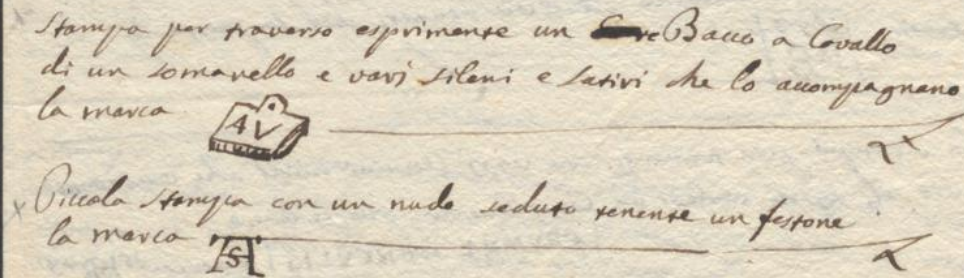 Stampa per traverso esprimente un Bacco a Cavallo
di un somarello e vari sileni e satiri che lo accompagnano
la marca AV
Piccola stampa con un nudo seduto tenente un festone
la marca S